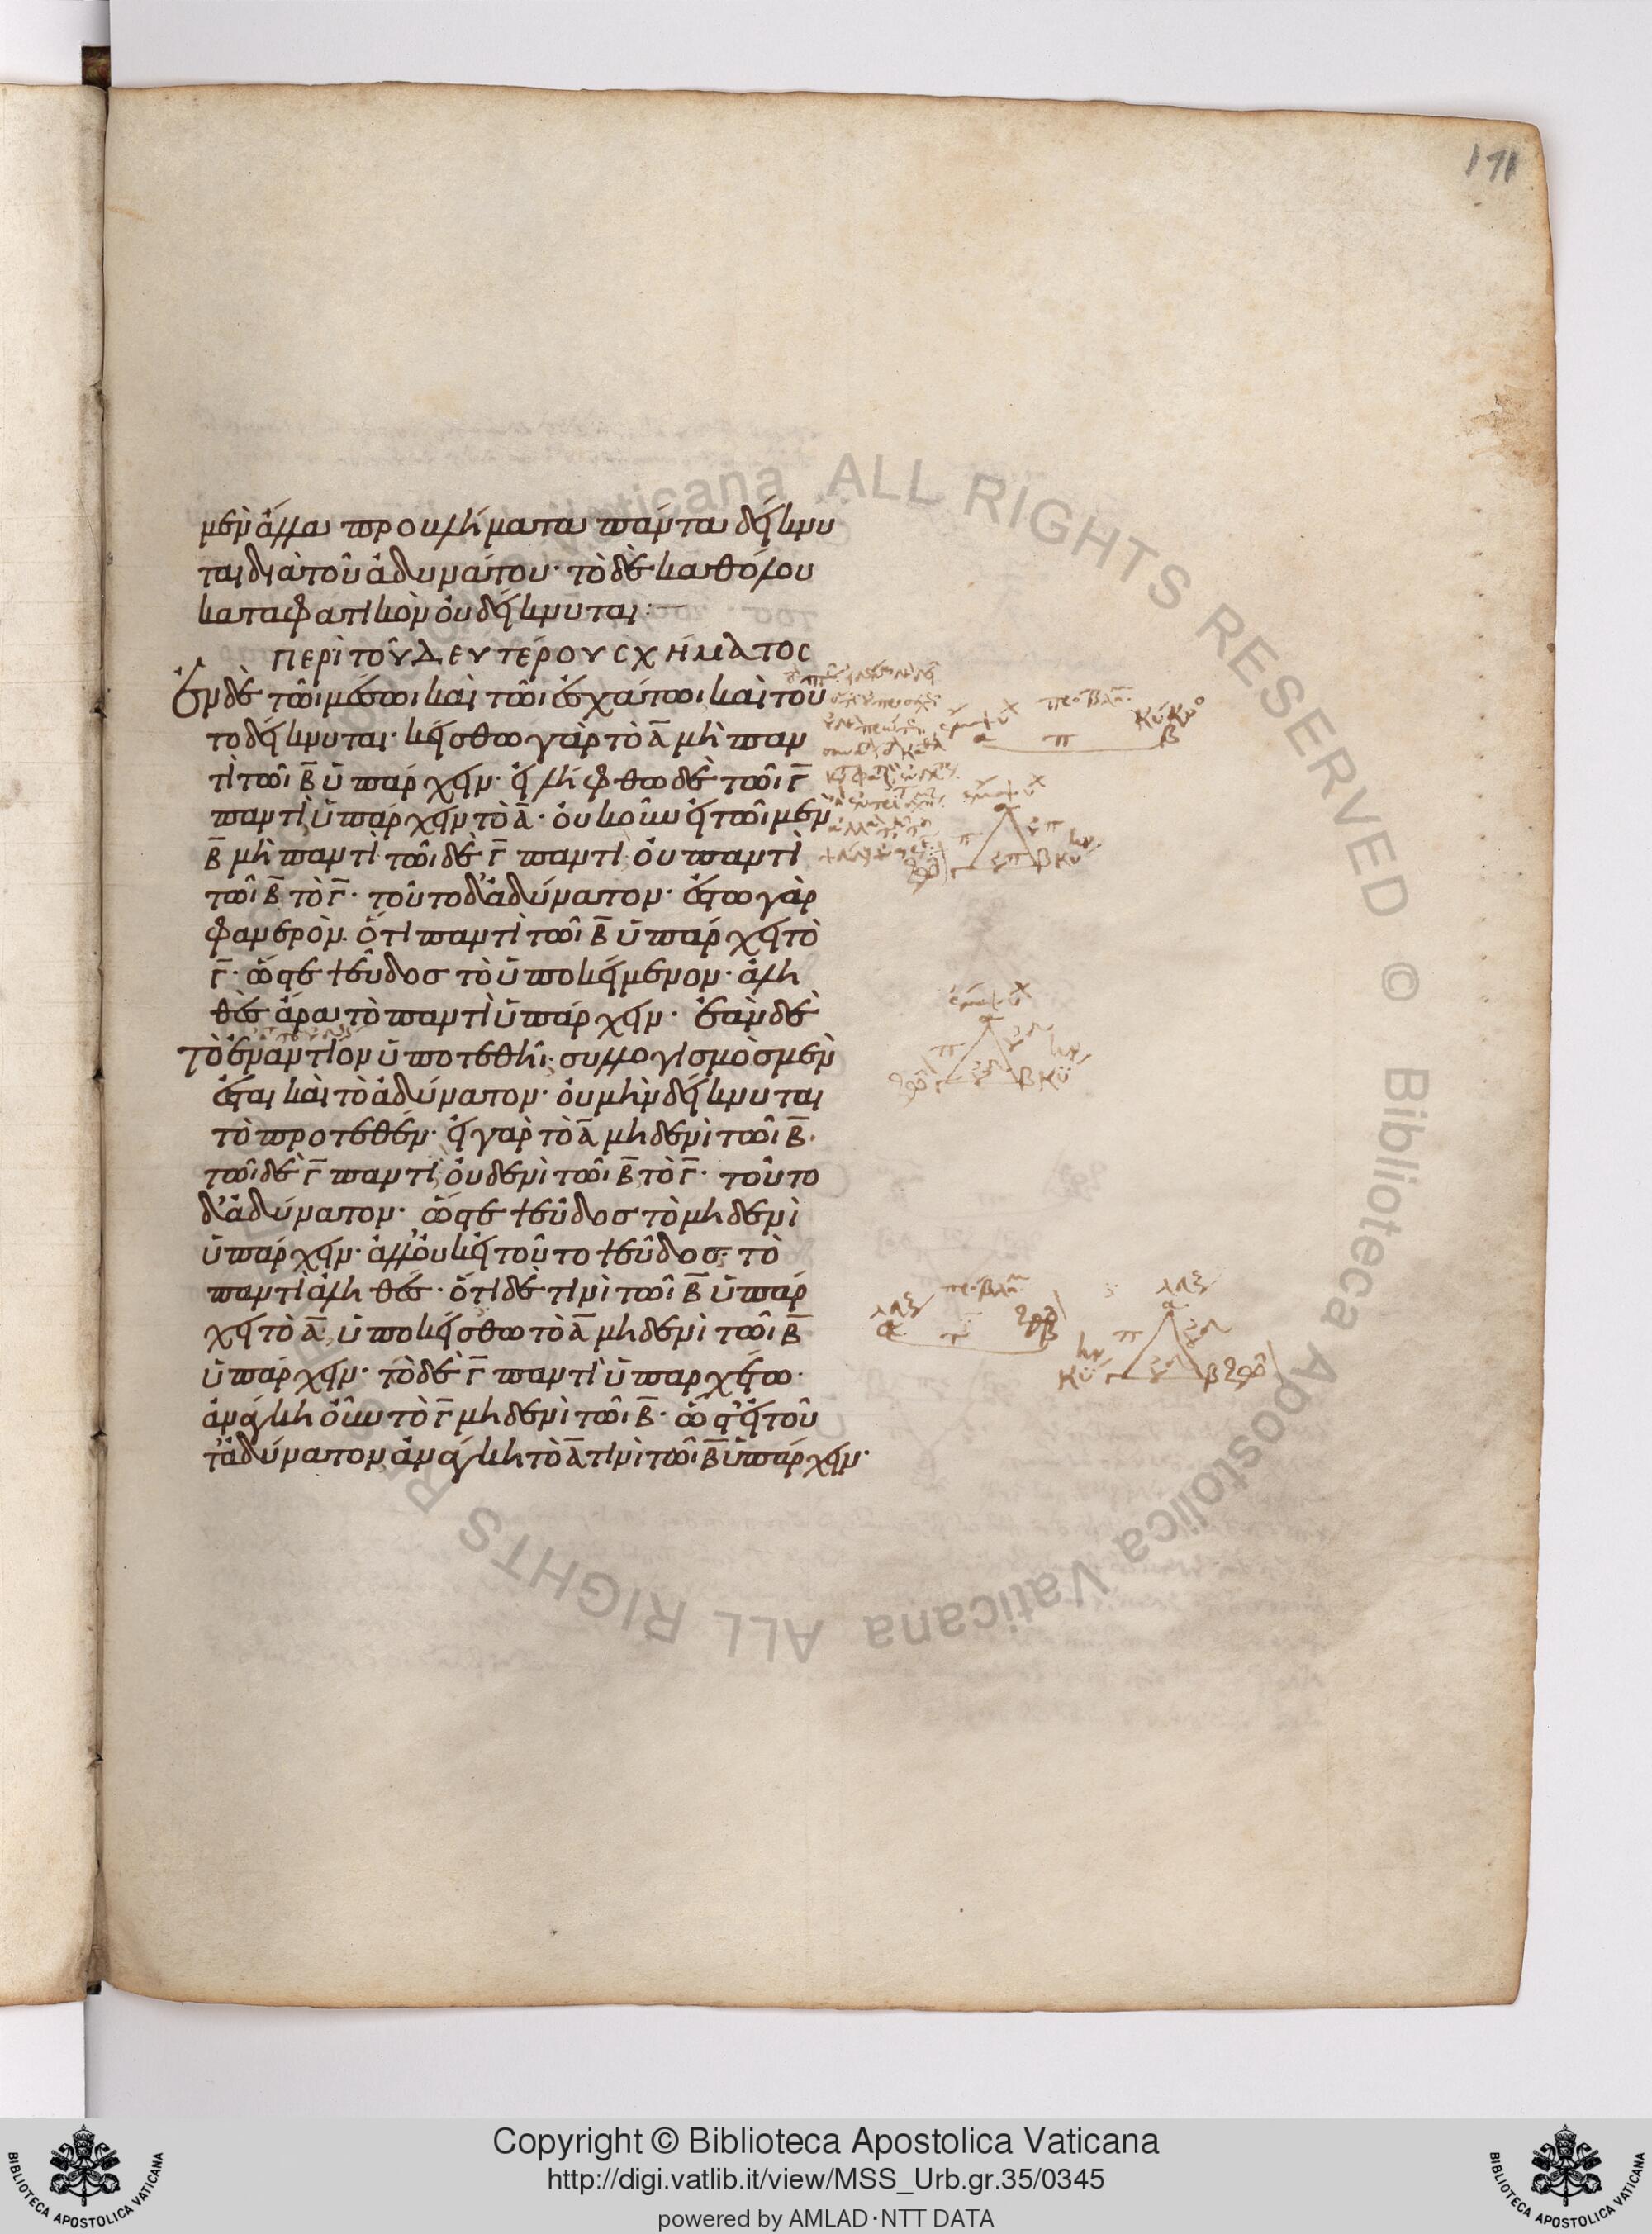 171
μὲν ἄλλα προβλήματα πάντα δείκνυ
ται διὰ τοῦ ἀδυνάτου· τὸ δὲ καθόλου
καταφατικὸν οὐ δείκνυται:
ΠΕΡὶ ΤΟῦ ΔΕΥΤέΡΟΥ ΣΧήΜΑΤΟΣ
Ἐν δὲ τῶι μέσωι καὶ τῶι ἐσχάτωι καὶ τοῦ
το δείκνυται· κείσθω γὰρ τὸ Α̅ μὴ παν
τὶ τῶι Β̅ ὑπάρχειν· εἰλήφθω δὲ τῶι Γ̅
παντὶ ὑπάρχειν τὸ Α̅· οὐκοῦν εἰ τῶι μὲν
Β̅ μὴ παντὶ τῶι δὲ Γ̅ παντὶ οὐ παντὶ
τῶι Β̅ τὸ Γ̅· τοῦτο δ' ἀδύνατον· ἔστω γὰρ
φανερὸν ὅτι παντὶ τῶι Β̅ ὑπάρχει τὸ
Γ̅· ὥστε ψεῦδοσ τὸ ὑποκείμενον· ἀλη
θὲσ ἄρα τὸ παντὶ ὑπάρχειν· ἐὰν δὲ
τὸ ἐναντίον ὑποτεθῆι· συλλογισμὸσ μὲν
ἔσται καὶ τὸ ἀδύνατον· οὐ μὴν δείκνυται
τὸ προτεθέν· εἰ γὰρ τὸ Α̅ μηδενὶ τῶι Β̅·
τῶι δὲ Γ̅ παντὶ, οὐδενὶ τῶι Β̅ τὸ Γ̅· τοῦτο
δ' ἀδύνατον· ὥστε ψεῦδοσ τὸ μηδενὶ
ὑπάρχειν· ἀλλ' οὐκ εἰ τοῦτο ψεῦδοσ· τὸ
παντὶ ἀληθέσ· ὅτι δὲ τινὶ τῶι Β̅ ὑπάρ
χει τὸ Α̅, ὑποκείσθω τὸ Α̅ μηδενὶ τῶι Β̅
ὑπάρχειν· τὸ δὲ Γ̅ παντὶ ὑπαρχέτω·
ἀνάγκη οὖν τὸ Γ̅ μηδενὶ τῶι Β̅· ὥστ' εἰ τοῦ
τ' ἀδύνατον ἀνάγκη τὸ Α̅ τινὶ τῶι Β̅ ὑπάρχειν·
ALL RIGHTS RESERVED © Biblioteca Apostolica Vaticana ALL RIGHTS
Copyright © Biblioteca Apostolica Vaticana
http://digi.vatlib.it/view/MSS_Urb.gr.35/0345
powered by AMLAD·NTT DATA
BIBLIOTECA APOSTOLICA VATICANA
BIBLIOTECA APOSTOLICA VATICANA